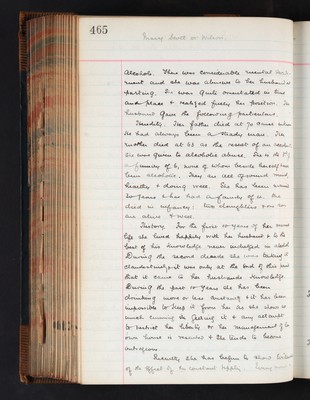 465
Mary Scott or Wilson.
Alcohol. There was considerable mental
ment and she was abusive to her husband at
parting. She was quite orientated in time
and place & realized fully her position. Her
husband gave the following particulars.
Heredity. Her father died at 70 & was when
he had always been a steady man. Her
mother died at 68 as the result of an accident
She was given to alcoholic abuse. She is the
family of 6, none of whom beside herself
been alcoholic. They are all grown and
healthy & doing well. She has been married
years & has had a family of
died in infancy: two daughters & one son
are alive & well.
History. For the first 10 years of her married
life she lived happily with her husband & to the
best of his knowledge never indulged in alcohol
During the second decade she was taking it
clandestinely & it was only at the end of this time
that it came to her husband's knowledge.
During the past 10 years she has been
drinking more or less constantly & it has been
impossible to keep it from her as she shows so
much cunning in getting it & any attempt
to restrict her liberty or her management of her
own house is resented & she tends to become
outrageous
Recently she has begun to show evidence
of the effect of the constant tippling.